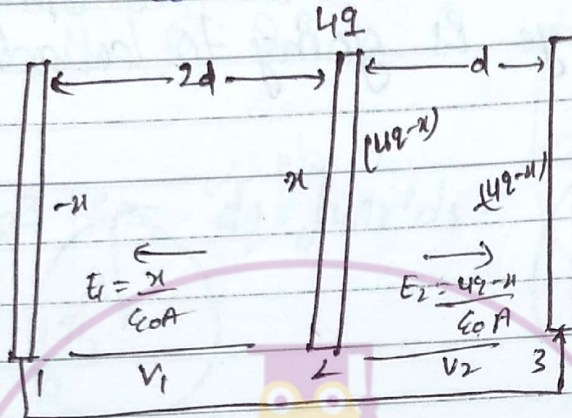 4q
2d
d
-x
x
(4q-x)
-(4q-x)
E₁ = x/ε₀A
E₂ = 4q-x/ε₀A
1
V₁
2
V₂
3